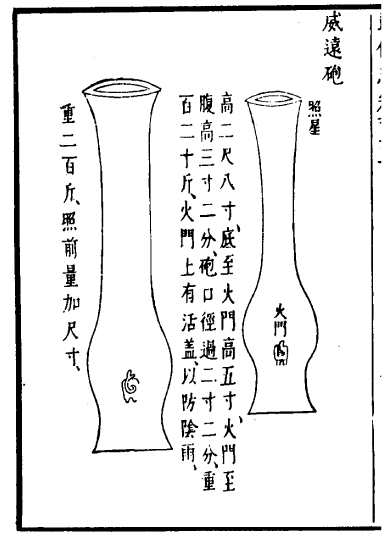 威遠砲
照星
火門
高二尺八寸、底至火門高五寸、火門至
腹高三寸二分、砲口徑過二寸二分、重
百二十斤、火門上有活盖、以防陰雨、
重二百斤、照前量加尺寸、